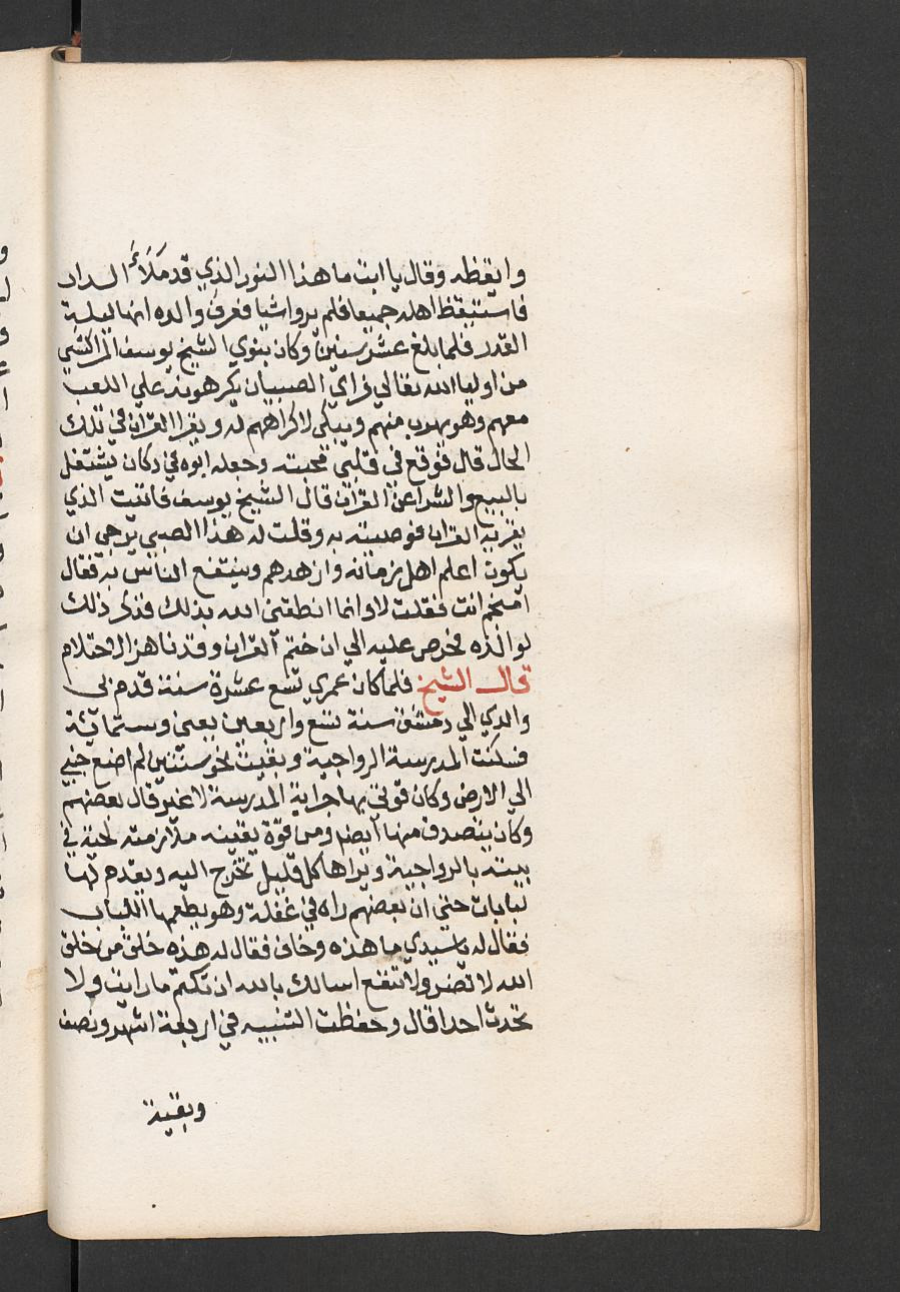 وايقظه وقال يا ابت ما هذا النور الذي قد مَلَأَ الدار
فاستيقظ اهله جميعا فلم يروا شيا فعرف والده انها ليلة
القدر فلما بلغ عشر سنين وكان بنوي الشيخ يوسف المراكشي
من اوليا الله تعالي فراي الصبيان يكرهونه علي اللعب
معهم وهو يهرب منهم ويبكي لاكراههم له ويقرا القران في تلك
الحال قال فوقع في قلبي محبته وجعله ابوه في دكان يشتغل
بالبيع والشرا عن القران قال الشيخ يوسف فاتيت الذي
يقريه القران فوصيته به وقلت له هذا الصبي يرجي ان
يكون اعلم اهل زمانه وازهدهم وينتفع الناس به فقال
امنجم انت فقلت لا وانما انطقني الله بذلك فذكر ذلك
لوالده فحرص عليه الي ان ختم القران وقد ناهز الاحتلام
قال الشيخ فلما كان عمري تسع عشرة سنة قدم بي
والدي الي دمشق سنة تسع واربعين يعني وستمائة
فسكنت المدرسة الرواجية وبقيت نحو سنتين لم اضع جنبي
الي الارض وكان قوتي بها جراية المدرسة لا غير قال بعضهم
وكان يتصدق منها ايضا ومن قوة يقينه ملازمته لحية في
بيته بالرواجية ويراها كل قليل تخرج اليه ويقدم لها
لبابات حتي ان بعضهم راه في غفلة وهو يطعمها اللباب
فقال له ياسيدي ما هذه وخاف فقال له هذه خلق من خلق
الله لا تضر ولا تنفع اسالك بالله ان تكتم ما رايت ولا
تحدث احدا قال وحفظت التنبيه في اربعة اشهر ونصف
وبقية